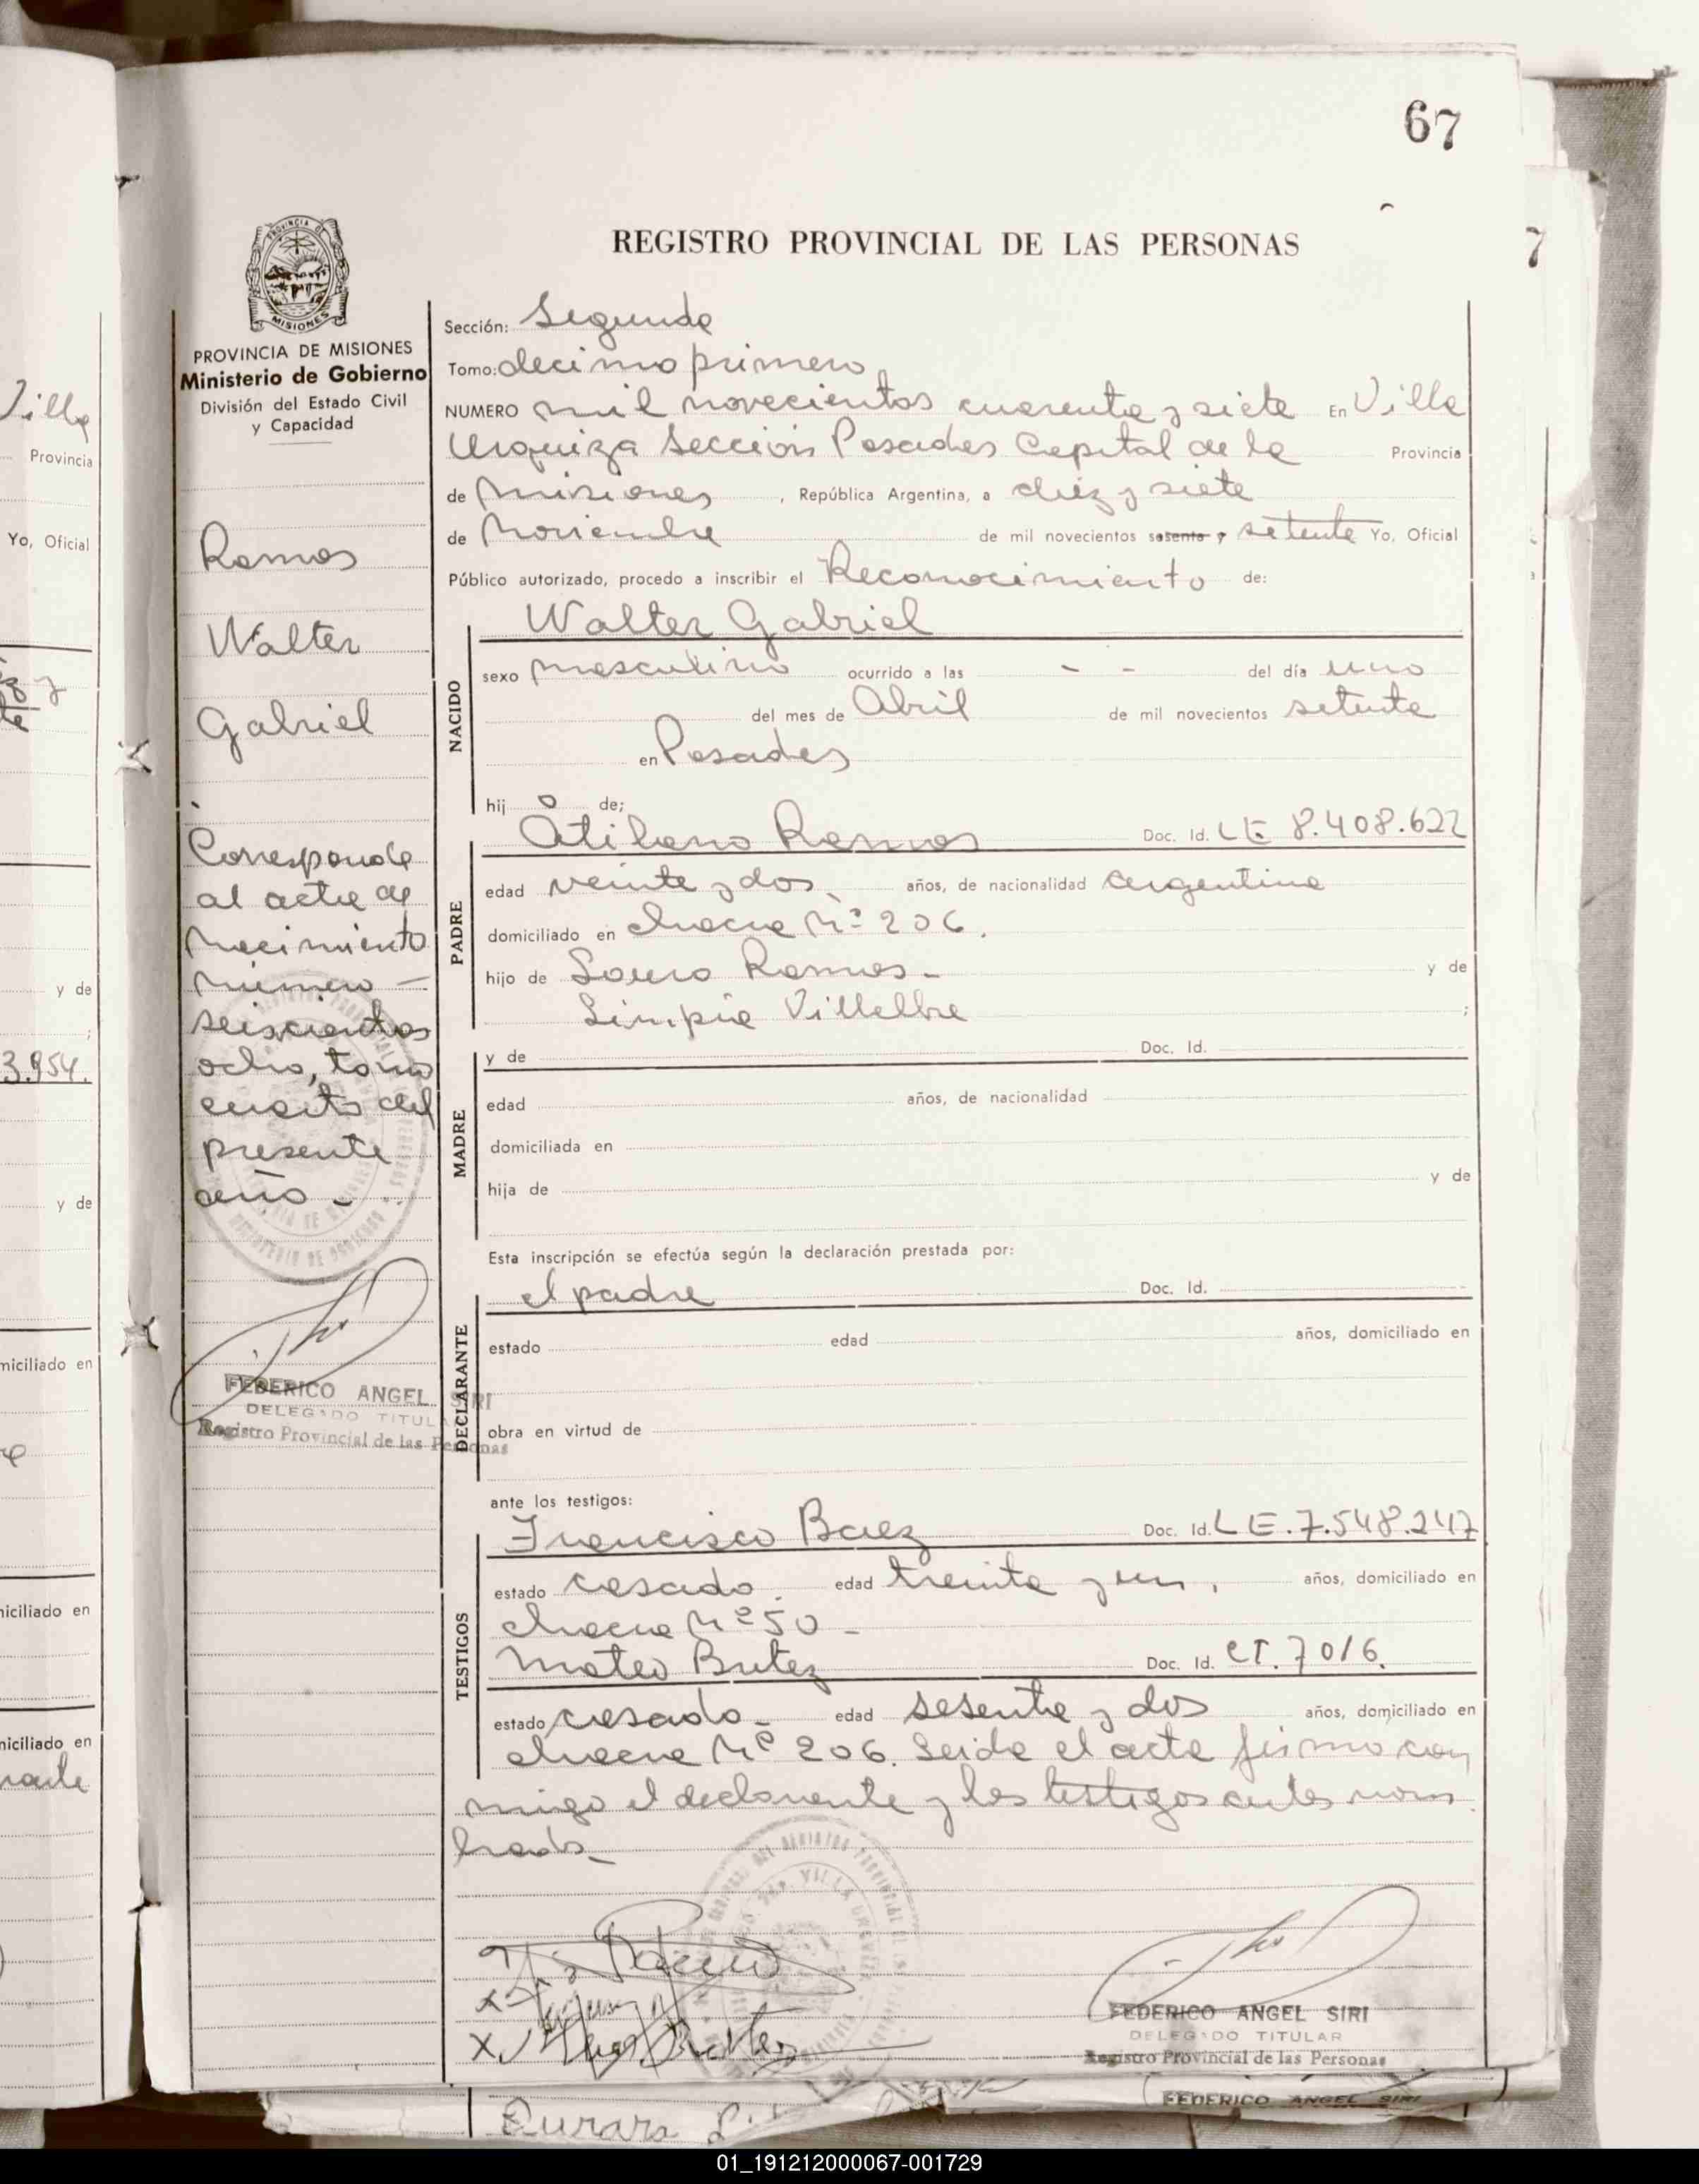 67
REGISTRO PROVINCIAL DE LAS PERSONAS
7
MISIONES
PROVINCIA DE MISIONES
Ministerio de Gobierno
División del Estado Civil
y Capacidad
Ramos
Walter
Gabriel
Corresponde
al acta de
Nacimiento
número —
seiscientos
ocho, tomo
cuarto del
presente
año -
FEDERICO ANGEL SIRI
DELEGADO TITULAR
Registro Provincial de las Personas
Sección: Segunda
Tomo: decimo primero
NUMERO mil novecientos cuarenta y siete En Villa
Urquiza Sección Posadas Capital de la Provincia
de Misiones, República Argentina, a diez y siete
de Noviembre de mil novecientos sesenta y setenta Yo, Oficial
Público autorizado, procedo a inscribir el Reconocimiento de:
Walter Gabriel
NACIDO
sexo masculino ocurrido a las - - del día uno
del mes de Abril de mil novecientos setenta
en Posadas
hij o de;
Atilano Ramos Doc. Id. LE 8.408.622
PADRE
edad veinte y dos años, de nacionalidad argentina
domiciliado en chacra Nº 206.
hijo de Lauro Ramos - y de
Limpia Villalba ;
y de Doc. Id.
MADRE
edad años, de nacionalidad
domiciliada en
hija de y de
Esta inscripción se efectúa según la declaración prestada por:
el padre Doc. Id.
DECLARANTE
estado edad años, domiciliado en
obra en virtud de
ante los testigos:
Francisco Baez Doc. Id. LE. 7.548.247
TESTIGOS
estado casado. edad treinta y un, años, domiciliado en
chacra Nº 50 -
Mateo Doc. Id. CI. 7016.
estado casado - edad sesenta y dos años, domiciliado en
chacra Nº 206. Leida el acta firma con
migo el declarante y los testigos antes nom
brados -
FEDERICO ANGEL SIRI
DELEGADO TITULAR
Registro Provincial de las Personas
FEDERICO ANGEL SIRI
Villa
Provincia
Yo, Oficial
y de
3.954.
y de
miciliado en
niciliado en
niciliado en
01_191212000067-001729